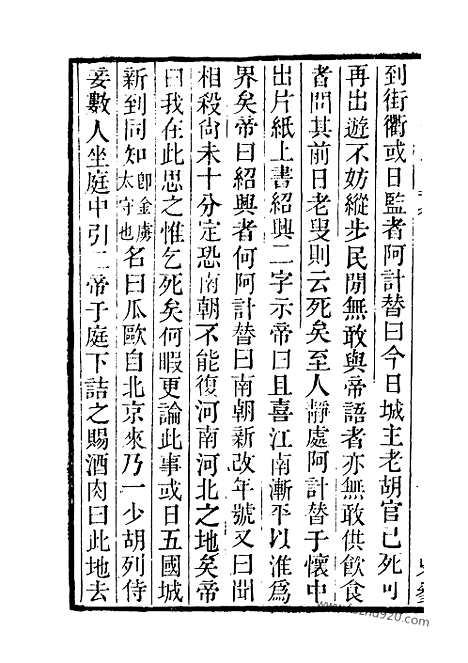 到街衢或日監者阿計替曰今日城主老胡官已死可
再出遊不妨縱步民閒無敢與帝語者亦無敢供飲食
者問其前日老叟則云死矣至人靜處阿計替于懷中
出片紙上書紹興二字示帝曰且喜江南漸平以淮爲
界矣帝曰紹興者何阿計替曰南朝新改年號又曰聞
相殺尙未十分定恐南朝不能復河南河北之地矣帝
曰我在此思之惟乞死矣何暇更論此事或日五國城
新到同知卽金虜太守也名曰瓜歐自北京來乃一少胡列侍
妾數人坐庭中引二帝于庭下詰之賜酒肉曰此地去